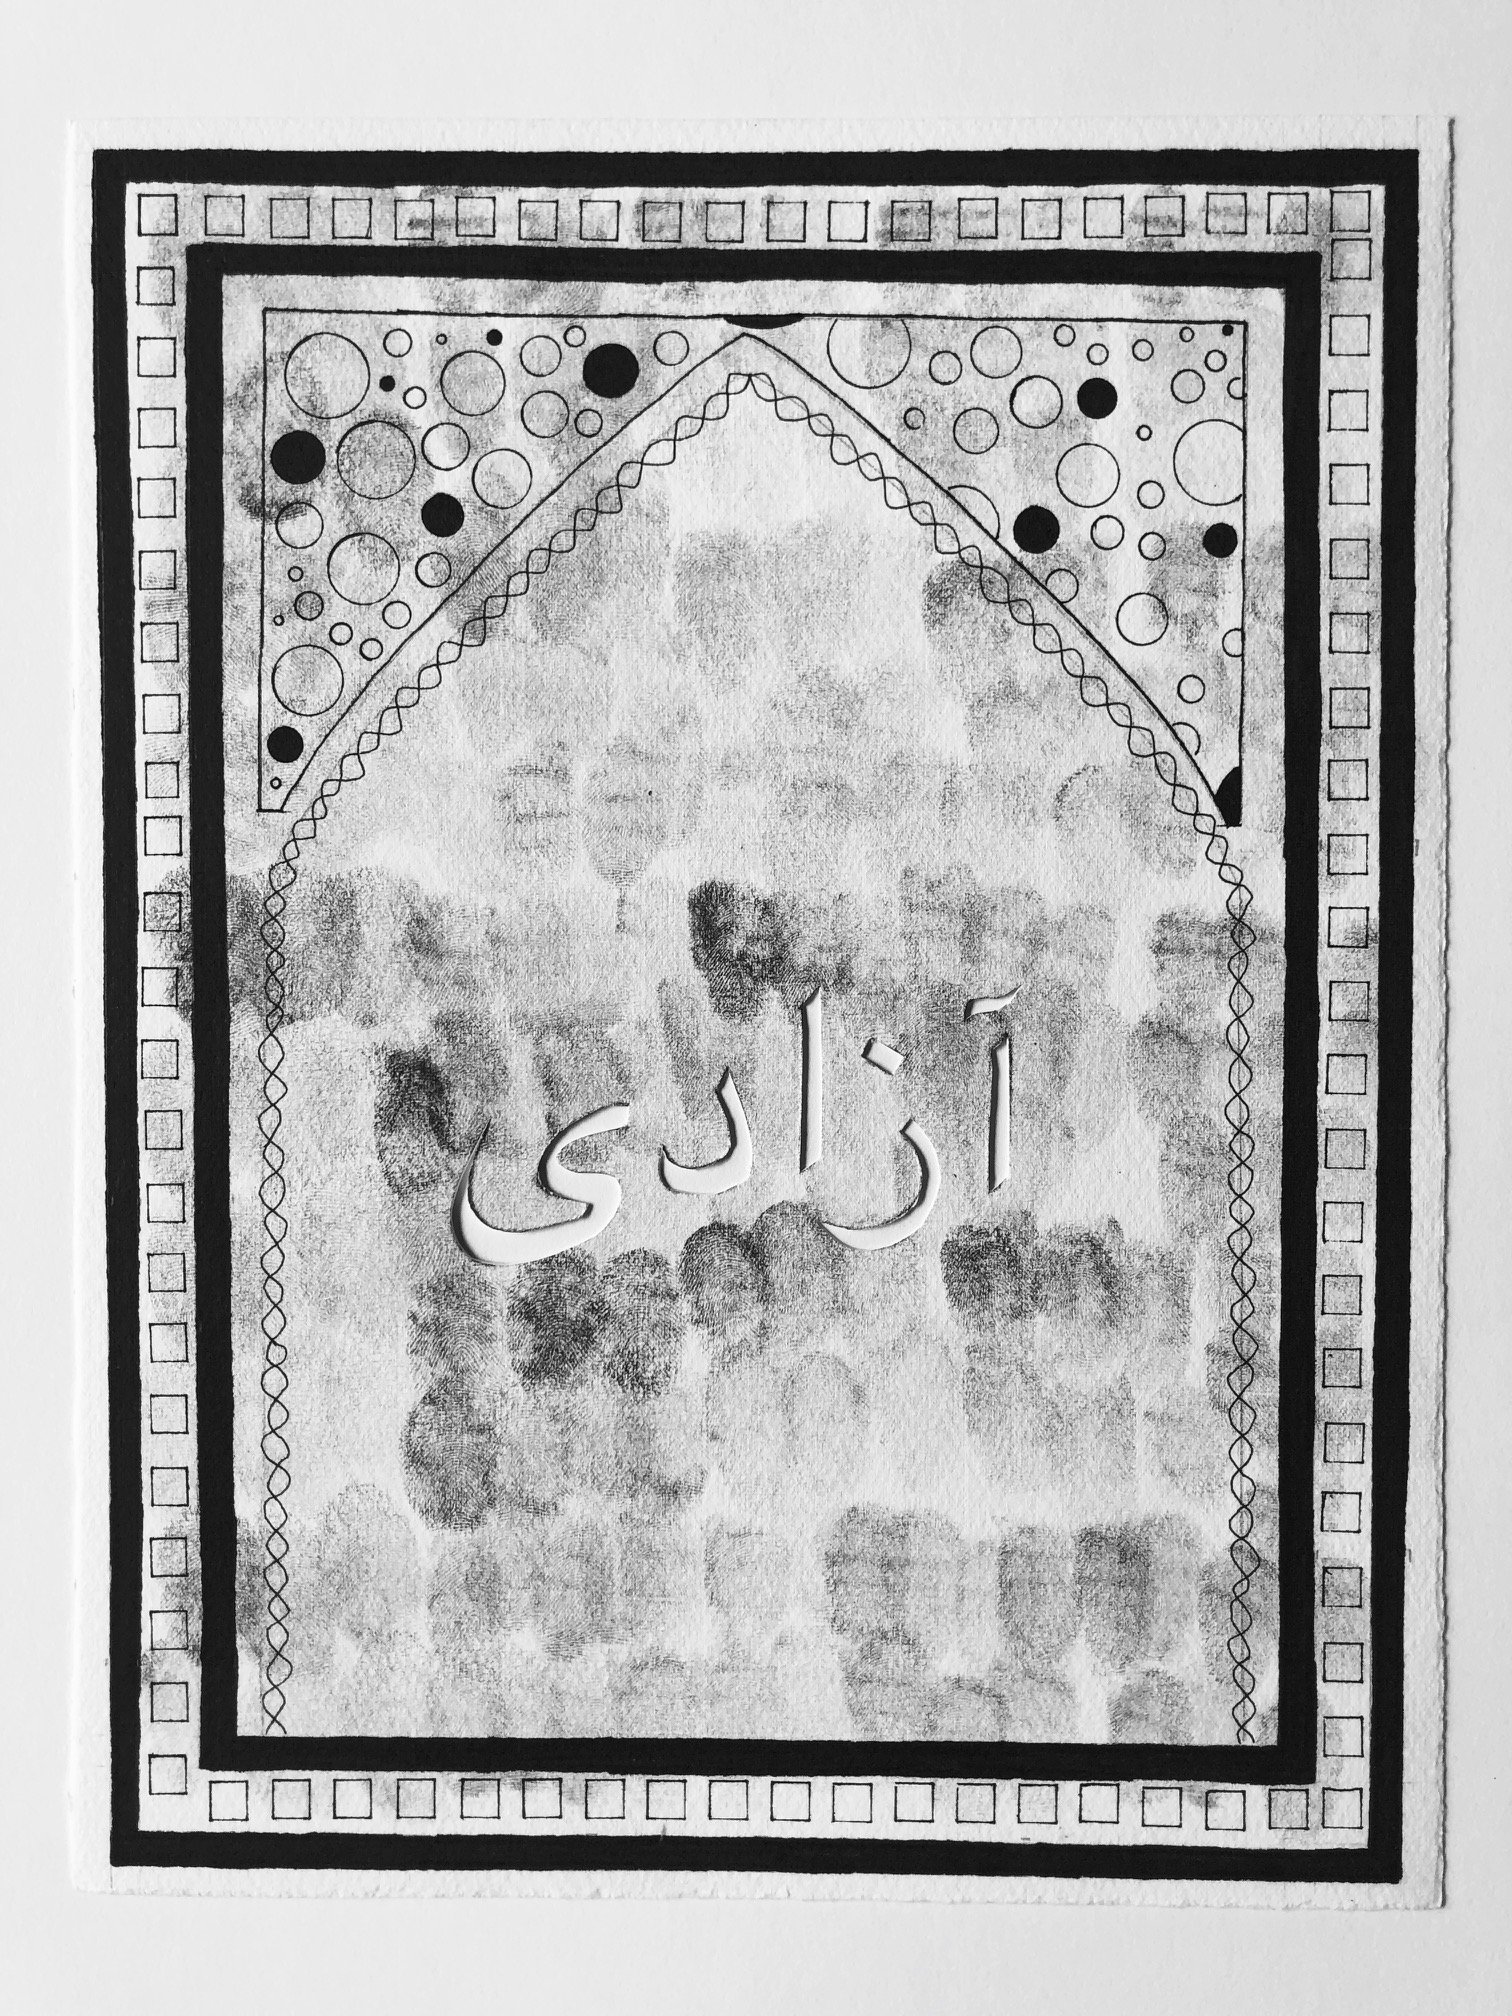 آزادی